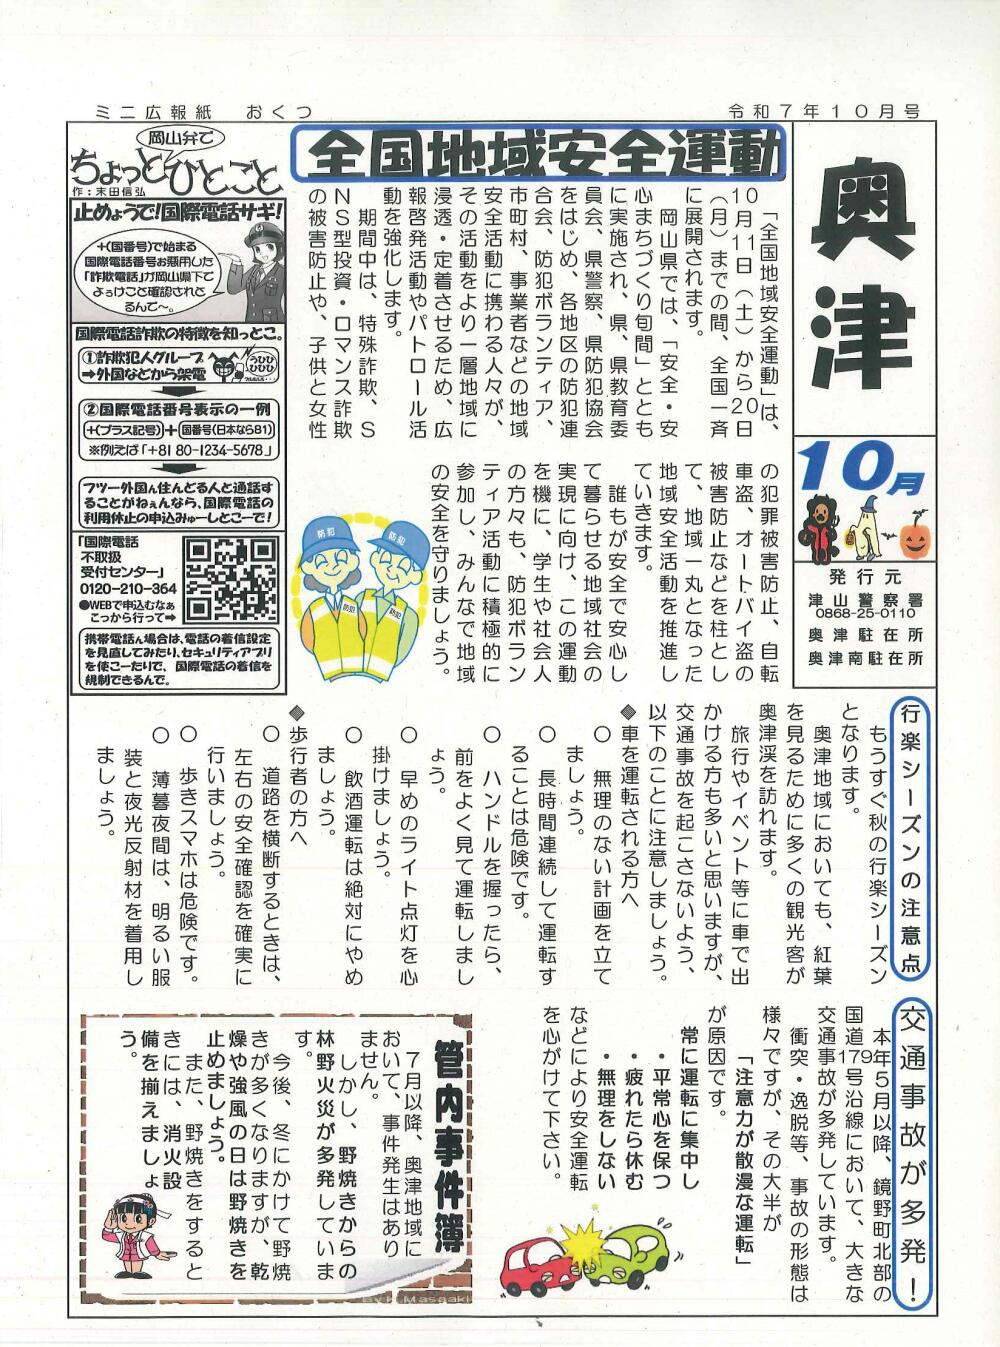 ミニ広報紙　おくつ
令和７年１０月号
奥津
10月
発行元
津山警察署
0868-25-0110
奥津駐在所
奥津南駐在所
全国地域安全運動
「全国地域安全運動」は、
１０月１１日（土）から２０日
（月）までの間、全国一斉
に展開されます。
岡山県では、「安全・安
心まちづくり旬間」ととも
に実施され、県、県教育委
員会、県警察、県防犯協会
をはじめ、各地区の防犯連
合会、防犯ボランティア、
市町村、事業者などの地域
安全活動に携わる人々が、
その活動をより一層地域に
浸透・定着させるため、広
報啓発活動やパトロール活
動を強化します。
期間中は、特殊詐欺、Ｓ
ＮＳ型投資・ロマンス詐欺
の被害防止や、子供と女性
の犯罪被害防止、自転
車盗、オートバイ盗の
被害防止などを柱とし
て、地域一丸となった
地域安全活動を推進し
ていきます。
誰もが安全で安心し
て暮らせる地域社会の
実現に向け、この運動
を機に、学生や社会人
の方々も、防犯ボラン
ティア活動に積極的に
参加し、みんなで地域
の安全を守りましょう。
防犯
防犯
防犯
防犯
岡山弁で
ちょっとひとこと
作：末田信弘
止めようで!国際電話サギ!
+(国番号)で始まる
国際電話番号お悪用した
「詐欺電話」が岡山県下で
よぅけこと確認されと
るんで〜。
国際電話詐欺の特徴を知っとこ。
①詐欺犯人グループ
➡外国などから架電
うひひ
ひひひ
②国際電話番号表示の一例
+(プラス記号)+国番号(日本なら81)
※例えば「+81 80-1234-5678」
フツー外国ん住んどる人と通話す
ることがねぇんなら、国際電話の
利用休止の申込みゅーしとこーで!
「国際電話
不取扱
受付センター」
0120-210-364
●WEBで申込むなぁ
こっから行って➡
携帯電話ん場合は、電話の着信設定
を見直してみたり、セキュリティアプリ
を使こーたりで、国際電話の着信を
規制できるんで。
行楽シーズンの注意点
もうすぐ秋の行楽シーズン
となります。
奥津地域においても、紅葉
を見るために多くの観光客が
奥津渓を訪れます。
旅行やイベント等に車で出
かける方も多いと思いますが、
交通事故を起こさないよう、
以下のことに注意しましょう。
◆車を運転される方へ
○　無理のない計画を立て
ましょう。
○　長時間連続して運転す
ることは危険です。
○　ハンドルを握ったら、
前をよく見て運転しまし
ょう。
○　早めのライト点灯を心
掛けましょう。
○　飲酒運転は絶対にやめ
ましょう。
◆歩行者の方へ
○　道路を横断するときは、
左右の安全確認を確実に
行いましょう。
○　歩きスマホは危険です。
○　薄暮夜間は、明るい服
装と夜光反射材を着用し
ましょう。
交通事故が多発！
本年５月以降、鏡野町北部の
国道179号沿線において、大きな
交通事故が多発しています。
衝突・逸脱等、事故の形態は
様々ですが、その大半が
「注意力が散漫な運転」
が原因です。
常に運転に集中し
・平常心を保つ
・疲れたら休む
・無理をしない
などにより安全運転
を心がけて下さい。
管内事件簿
７月以降、奥津地域に
おいて、事件発生はあり
ません。
しかし、野焼きからの
林野火災が多発していま
す。
今後、冬にかけて野焼
きが多くなりますが、乾
燥や強風の日は野焼きを
止めましょう。
また、野焼きをすると
きには、消火設
備を揃えましょ
う。